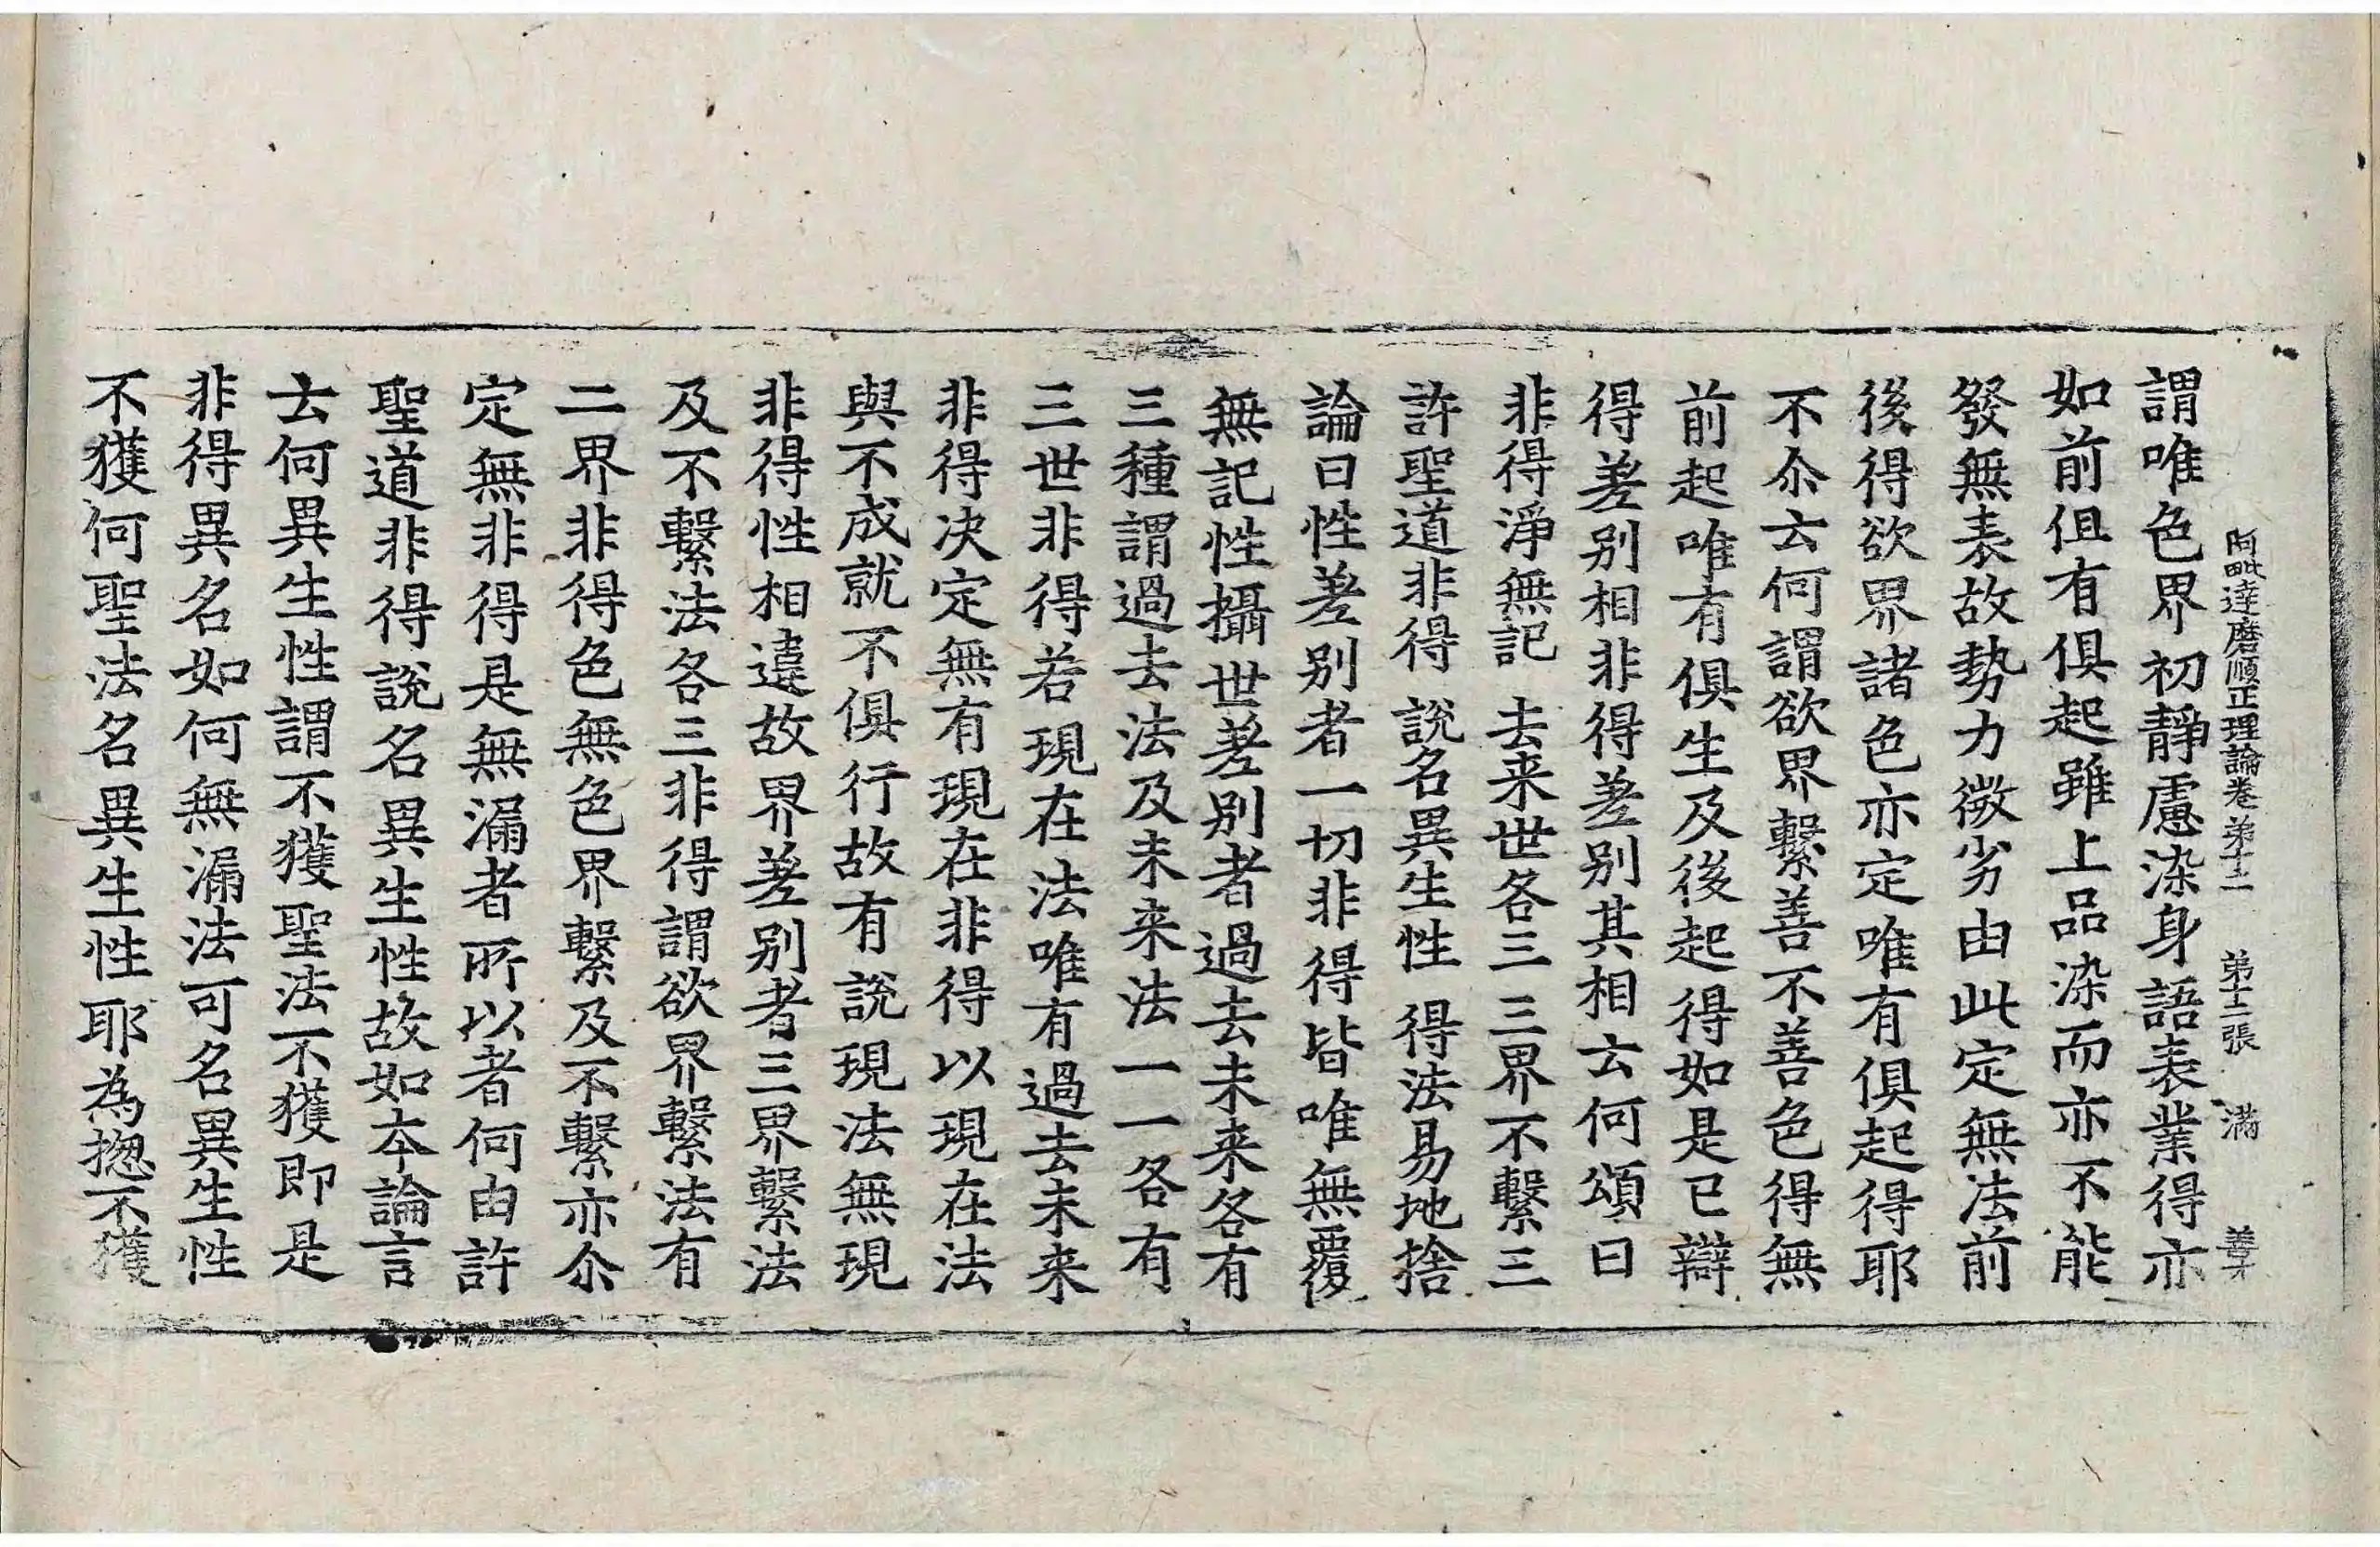 阿毗達磨順正理論卷第十二 第十二張 滿
謂唯色界初靜慮染身語表業得亦
如前但有俱起雖上品染而亦不能
發無表故勢力微劣由此定無法前
後得欲界諸色亦定唯有俱起得耶
不尒云何謂欲界繫善不善色得無
前起唯有俱生及後起得如是已辯
得差别相非得差别其相云何頌曰
非得淨無記 去来世各三 三界不繫三
許聖道非得 說名異生性 得法易地捨
論曰性差别者一切非得皆唯無覆
無記性攝世差别者過去未来各有
三種謂過去法及未来法一一各有
三世非得若現在法唯有過去未来
非得决定無有現在非得以現在法
與不成就不俱行故有說現法無現
非得性相違故界差别者三界繫法
及不繫法各三非得謂欲界繫法有
二界非得色無色界繫及不繫亦尒
定無非得是無漏者所以者何由許
聖道非得說名異生性故如本論言
云何異生性謂不獲聖法不獲即是
非得異名如何無漏法可名異生性
不獲何聖法名異生性耶為揔不獲